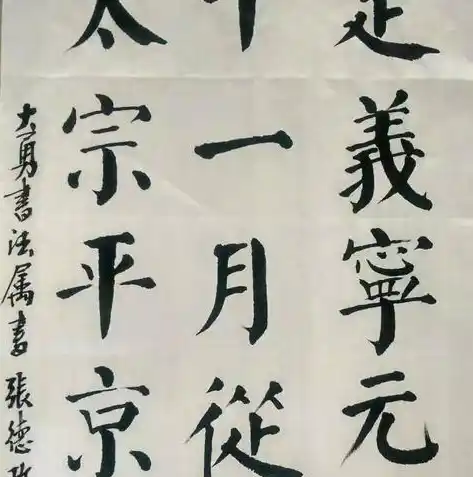 義寧元
十一月從
太宗平京
大勇書法属書 張德